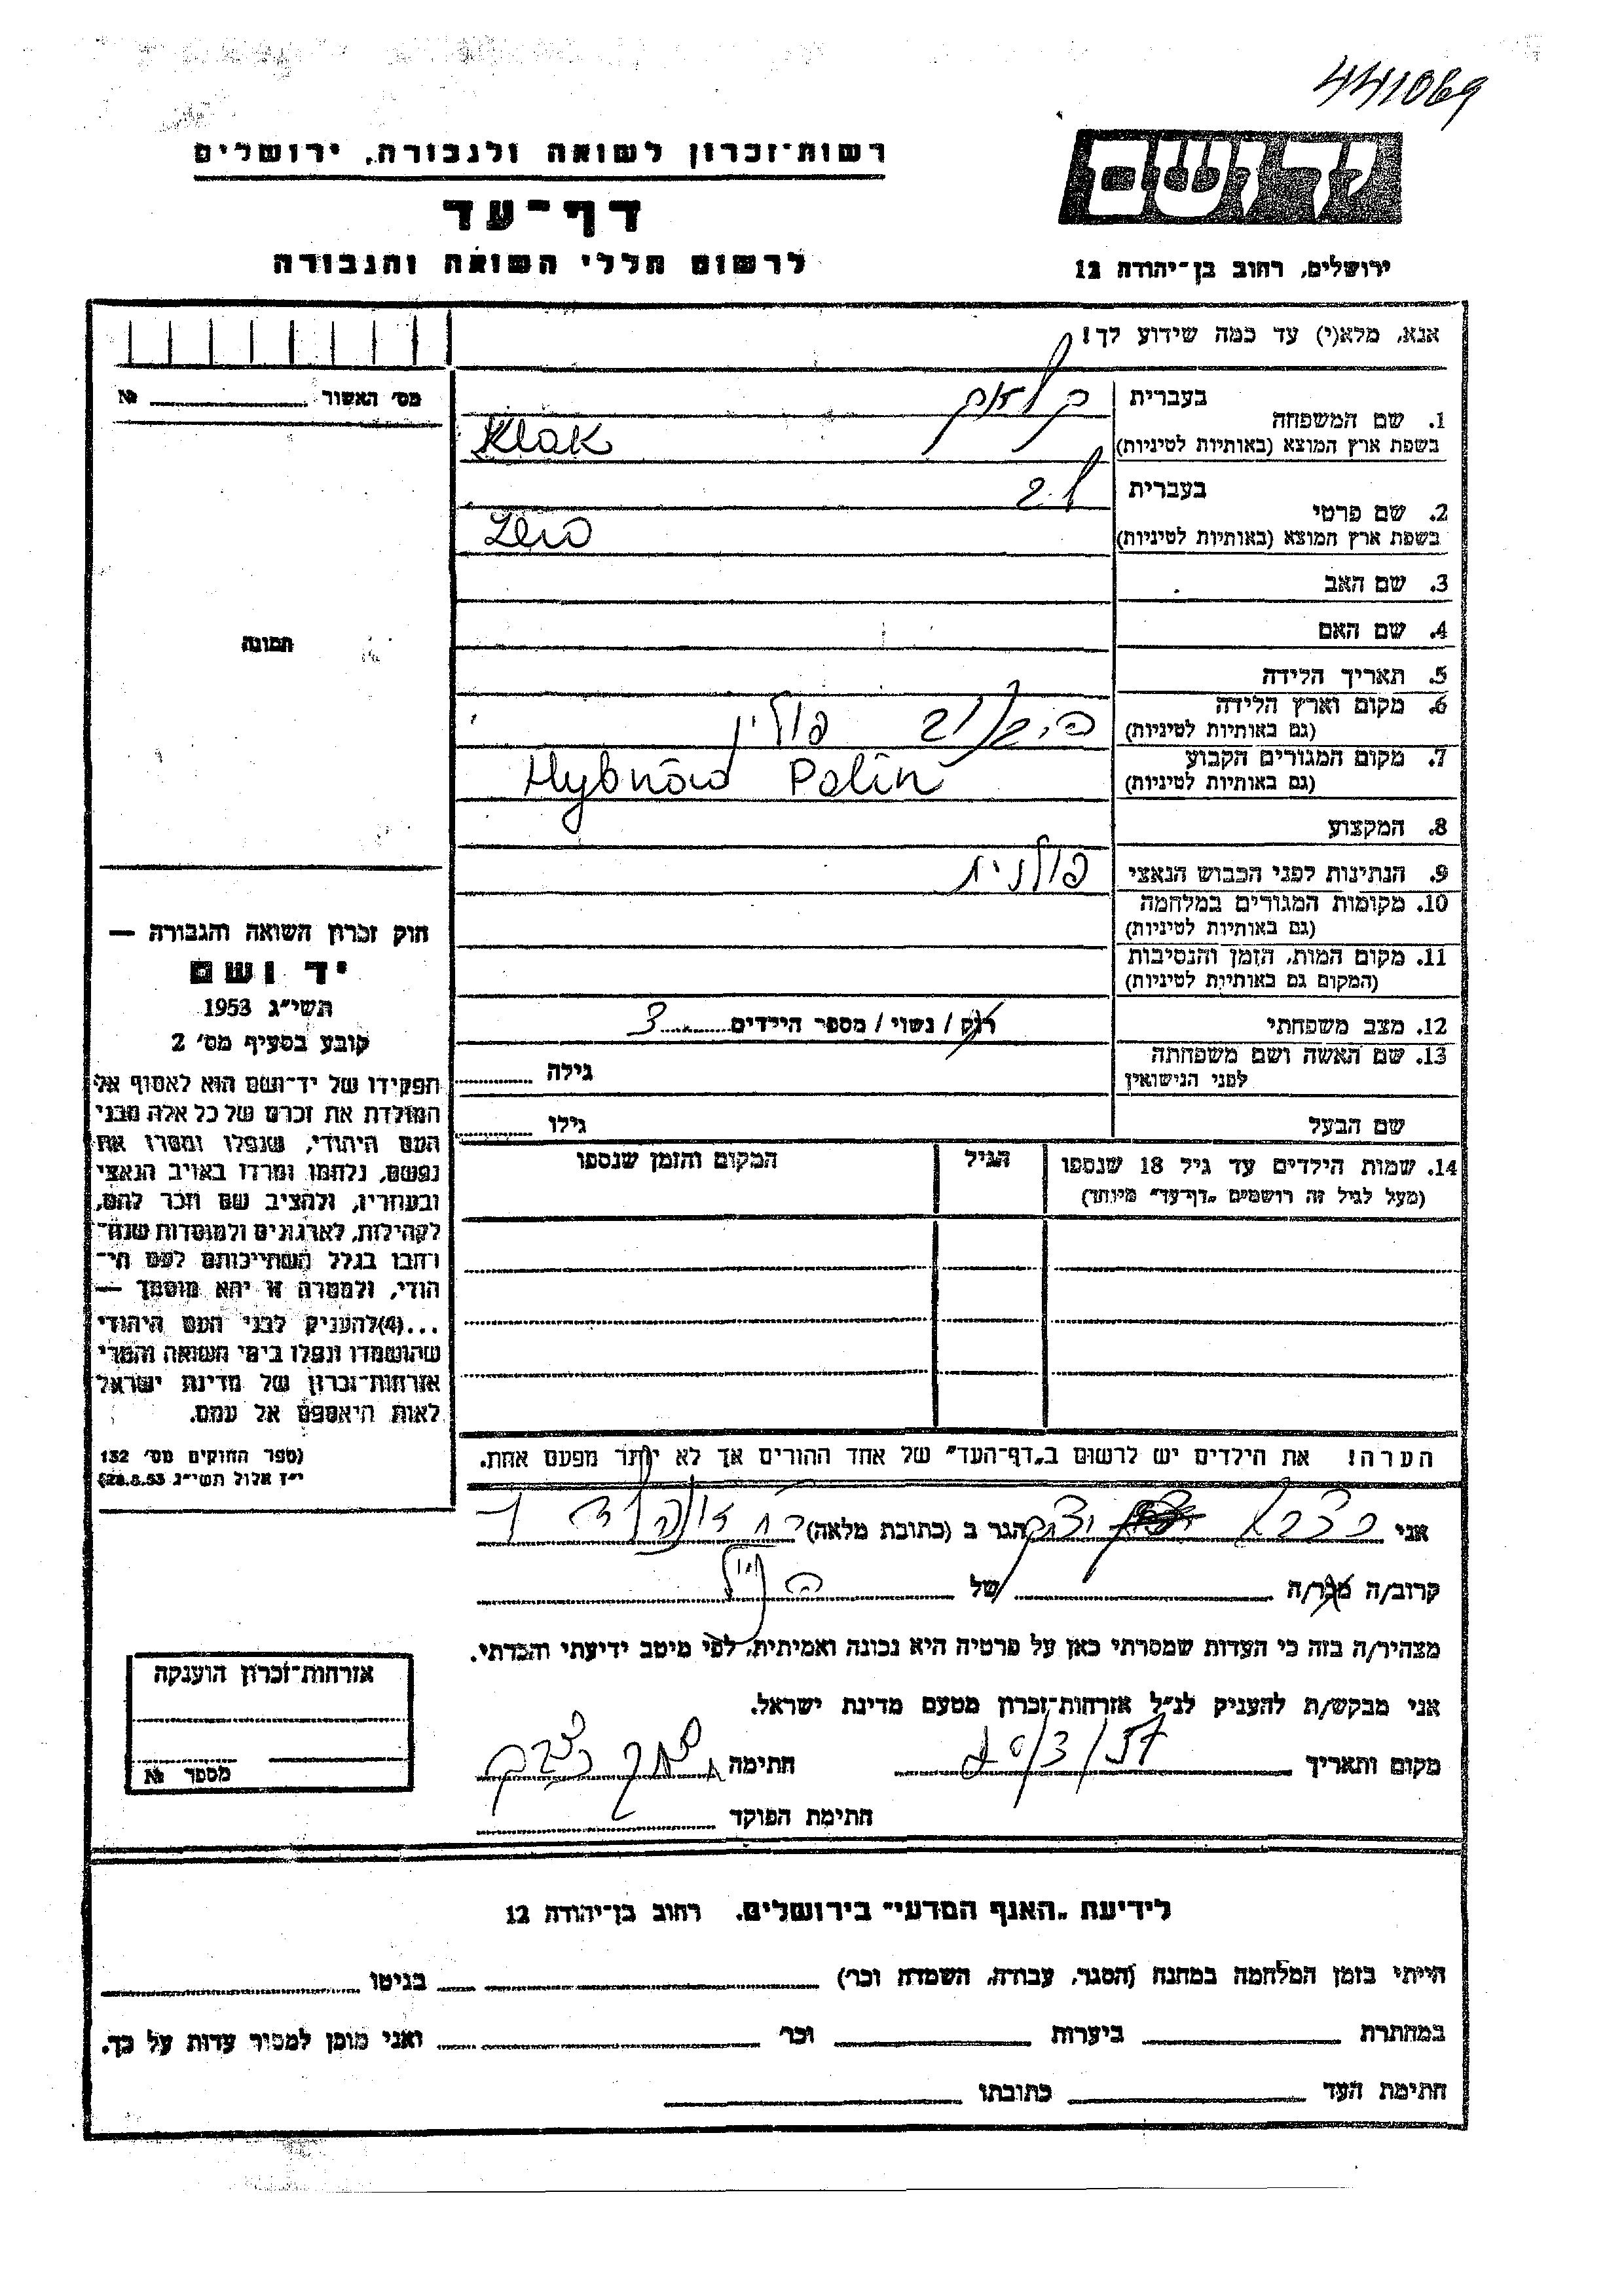 441069
יד ושם
רשות־זכרון לשואה ולגבורה, ירושלים
דף־עד
לרשום חללי השואה והגבורה
ירושלים, רחוב בן־יהודה 12
אנא, מלא(י) עד כמה שידוע לך!
מס' האשור № 
1. שם המשפחה
בעברית קלאק
בשפת ארץ המוצא (באותיות לטיניות) Klak
2. שם פרטי
בעברית לב
בשפת ארץ המוצא (באותיות לטיניות)
3. שם האב
4. שם האם
תמונה
5. תאריך הלידה
6. מקום וארץ הלידה
(גם באותיות לטיניות) פולין
7. מקום המגורים הקבוע
(גם באותיות לטיניות) Hybnów Polin
8. המקצוע
9. הנתינות לפני הכבוש הנאצי פולנית
10. מקומות המגורים במלחמה
(גם באותיות לטיניות)
11. מקום המות, הזמן והנסיבות
(המקום גם באותיות לטיניות)
12. מצב משפחתי רוק / נשוי / מספר הילדים 3
13. שם האשה ושם משפחתה
לפני הנישואין גילה
שם הבעל גילו
14. שמות הילדים עד גיל 18 שנספו הגיל המקום והזמן שנספו
(מעל לגיל זה רושמים „דף־עד" מיוחד)
הערה! את הילדים יש לרשום ב„דף־העד" של אחד ההורים אך לא יותר מפעם אחת.
חוק זכרון השואה והגבורה —
יד ושם
תשי"ג 1953
קובע בסעיף מס' 2
תפקידו של יד־ושם הוא לאסוף אל
המולדת את זכרם של כל אלה מבני
העם היהודי, שנפלו ומסרו את
נפשם, נלחמו ומרדו באויב הנאצי
ובעוזריו, ולהציב שם וזכר להם,
לקהילות, לארגונים ולמוסדות שנח־
רבו בגלל השתייכותם לעם הי־
הודי, ולמטרה זו יהא מוסמך —
...(4)להעניק לבני העם היהודי
שהושמדו ונפלו בימי השואה והמרי
אזרחות־זכרון של מדינת ישראל
לאות היאספם אל עמם.
(ספר החוקים מס' 132
י"ז אלול תשי"ג 28.8.53)
אני הגר ב (כתובת מלאה)
קרוב/ה מכר/ה של
מצהיר/ה בזה כי העדות שמסרתי כאן על פרטיה היא נכונה ואמיתית, לפי מיטב ידיעתי והכרתי.
אני מבקש/ת להעניק לנ"ל אזרחות־זכרון מטעם מדינת ישראל.
מקום ותאריך 20/3/57 חתימה
חתימת הפוקד
אזרחות־זכרון הוענקה
מספר №
לידיעת „האגף המדעי" בירושלים, רחוב בן־יהודה 12
הייתי בזמן המלחמה במחנה (הסגר, עבודה, השמדה וכו') בגיטו
במחתרת ביערות וכו' ואני מוכן למסור עדות על כך.
חתימת העד כתובתו